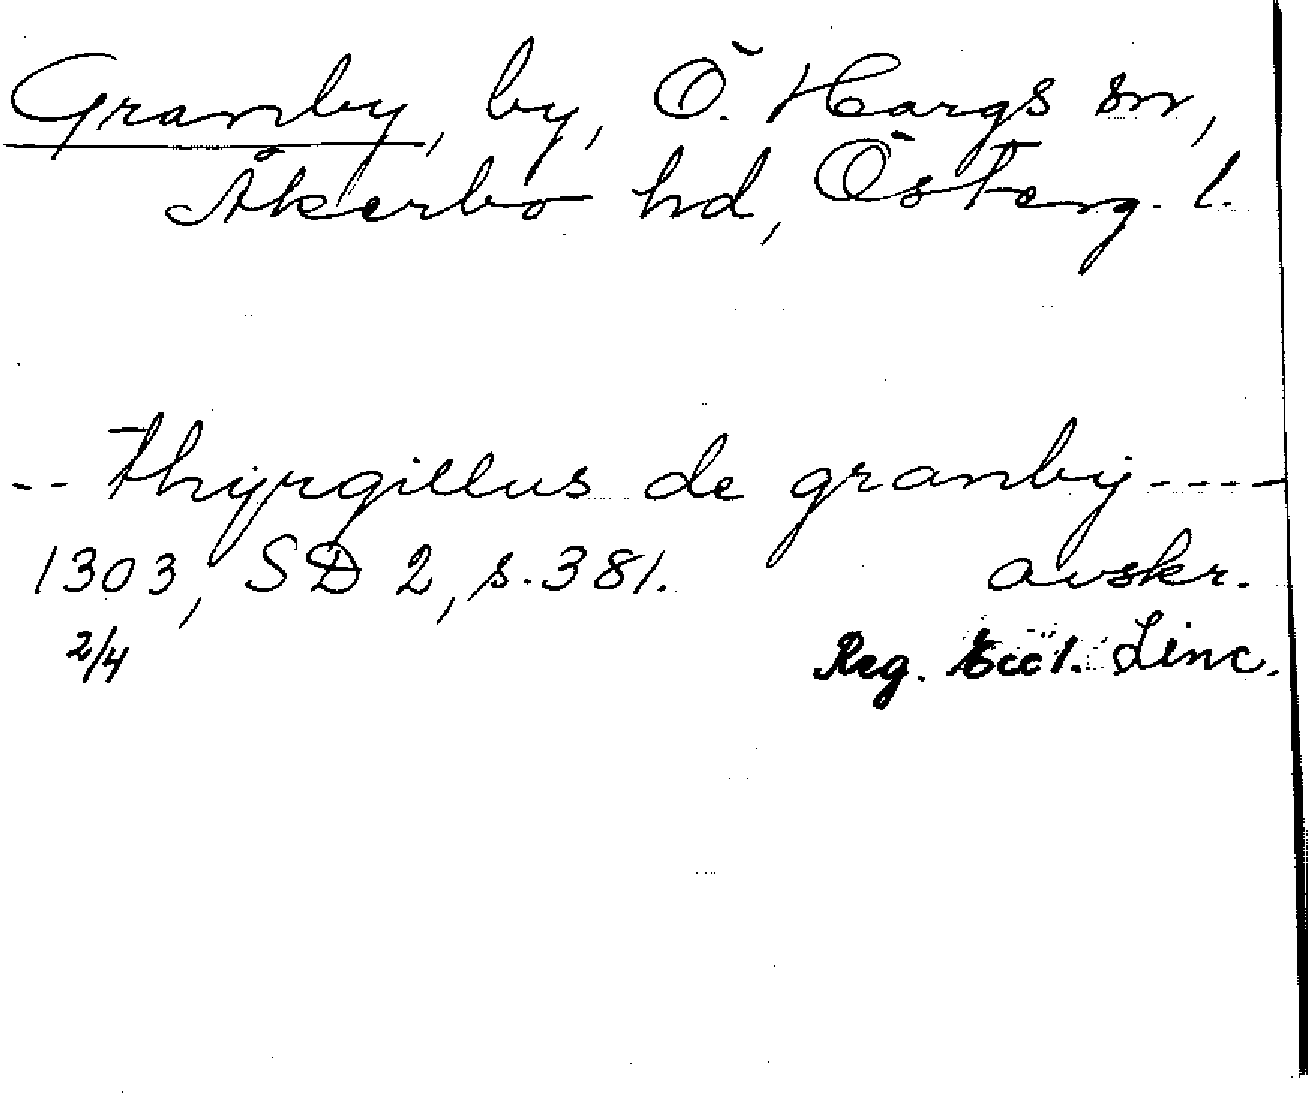 Granby, by, Ö. Hargs sn,
Åkerbo hd, Österg. l.
-- thyrgillus de granby ----
1303, SD 2, s. 381. avskr.
2/4 Reg. Eccl. Linc.